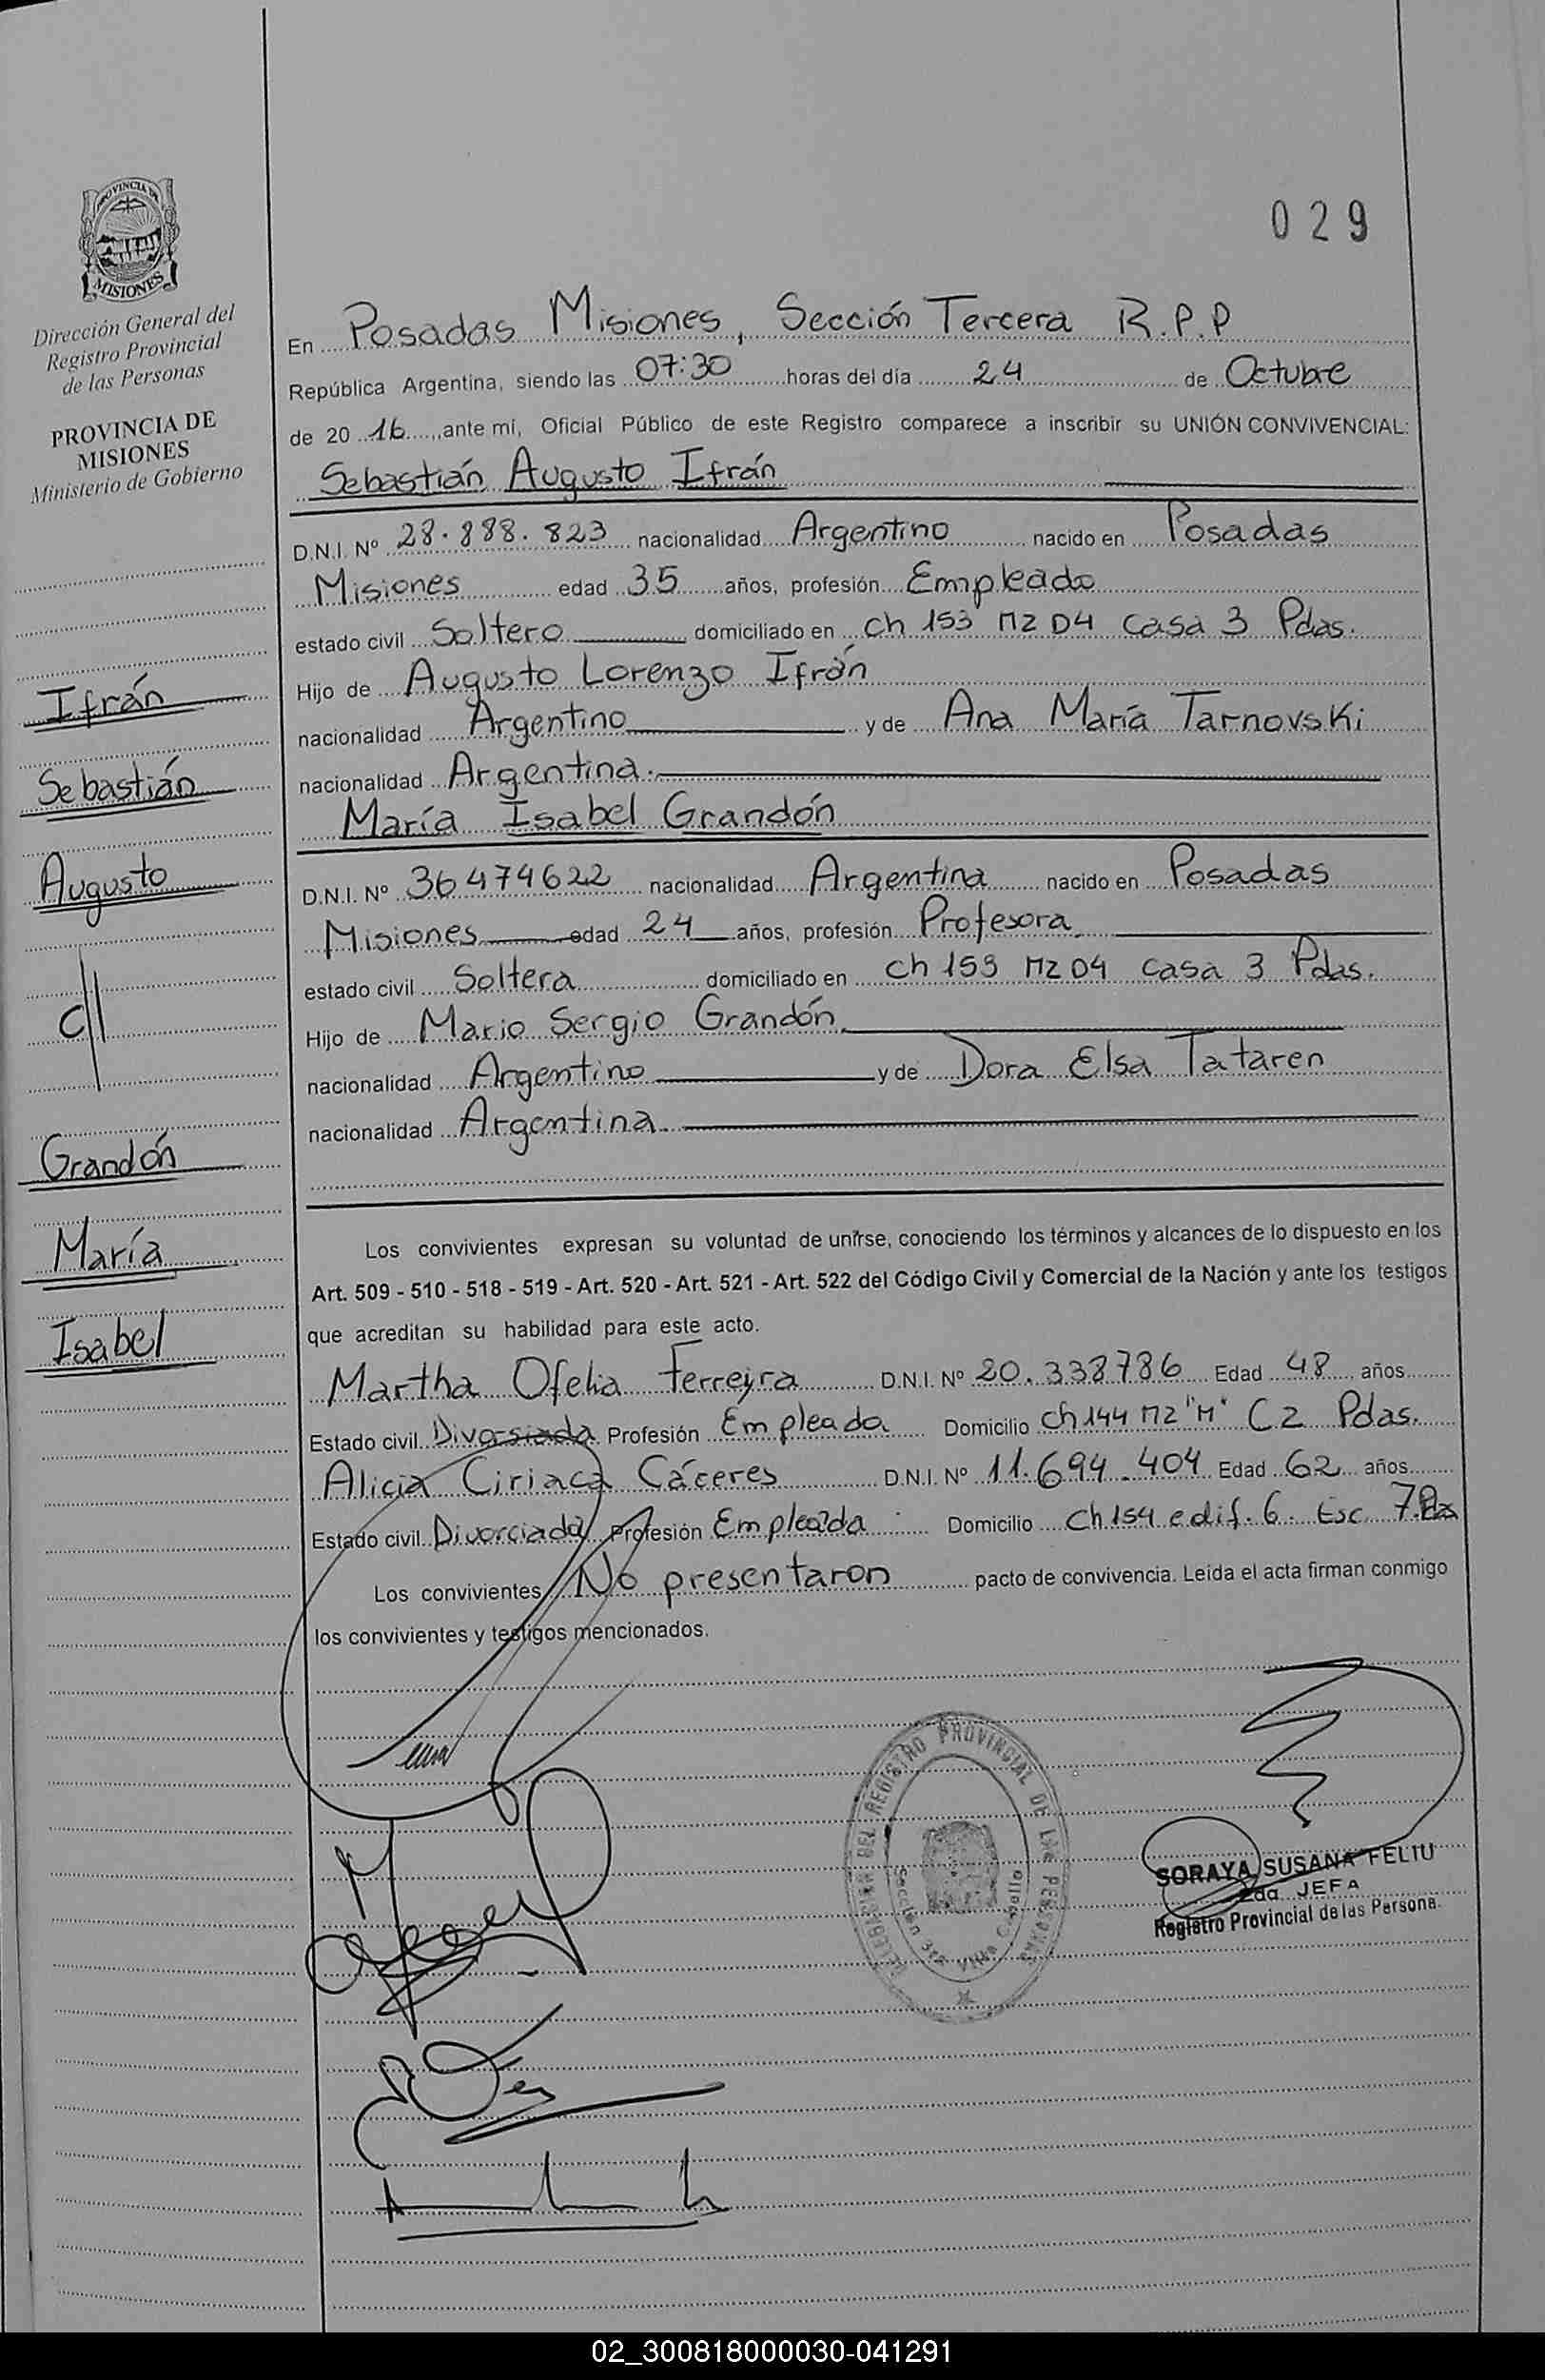 029
PROVINCIA DE
MISIONES
Dirección General del
Registro Provincial
de las Personas
PROVINCIA DE
MISIONES
Ministerio de Gobierno
Ifrán
Sebastián
Augusto
c/
Grandón
María
Isabel
En Posadas Misiones, Sección Tercera R.P.P
República Argentina, siendo las 07:30 horas del día 24 de Octubre
de 20 16, ante mí, Oficial Público de este Registro comparece a inscribir su UNIÓN CONVIVENCIAL:
Sebastián Augusto Ifrán
D.N.I. Nº 28.888.823 nacionalidad Argentino nacido en Posadas
Misiones edad 35 años, profesión Empleado
estado civil Soltero domiciliado en ch 153 MZ D4 casa 3 Pdas.
Hijo de Augusto Lorenzo Ifrán
nacionalidad Argentino y de Ana María Tarnovski
nacionalidad Argentina.
María Isabel Grandón
D.N.I. Nº 36474622 nacionalidad Argentina nacido en Posadas
Misiones edad 24 años, profesión Profesora
estado civil Soltera domiciliado en ch 153 MZ D4 casa 3 Pdas.
Hijo de Mario Sergio Grandón
nacionalidad Argentino y de Dora Elsa Tataren
nacionalidad Argentina.
Los convivientes expresan su voluntad de unirse, conociendo los términos y alcances de lo dispuesto en los
Art. 509 - 510 - 518 - 519 - Art. 520 - Art. 521 - Art. 522 del Código Civil y Comercial de la Nación y ante los testigos
que acreditan su habilidad para este acto.
Martha Ofelia Ferreyra D.N.I. Nº 20.338786 Edad 48 años
Estado civil Divorsiada Profesión Empleada Domicilio ch 144 MZ "M" C2 Pdas.
Alicia Ciriaca Cáceres D.N.I. Nº 11.694.404 Edad 62 años
Estado civil Divorciada Profesión Empleada Domicilio ch 154 edif. 6. Esc. 7.
Los convivientes No presentaron pacto de convivencia. Leída el acta firman conmigo
los convivientes y testigos mencionados.
DELEGACIÓN DEL REGISTRO PROVINCIAL DE LAS PERSONAS
Sección 3ra Villa Cabello
SORAYA SUSANA FELIU
2da JEFA
Registro Provincial de las Persona.
02_300818000030-041291